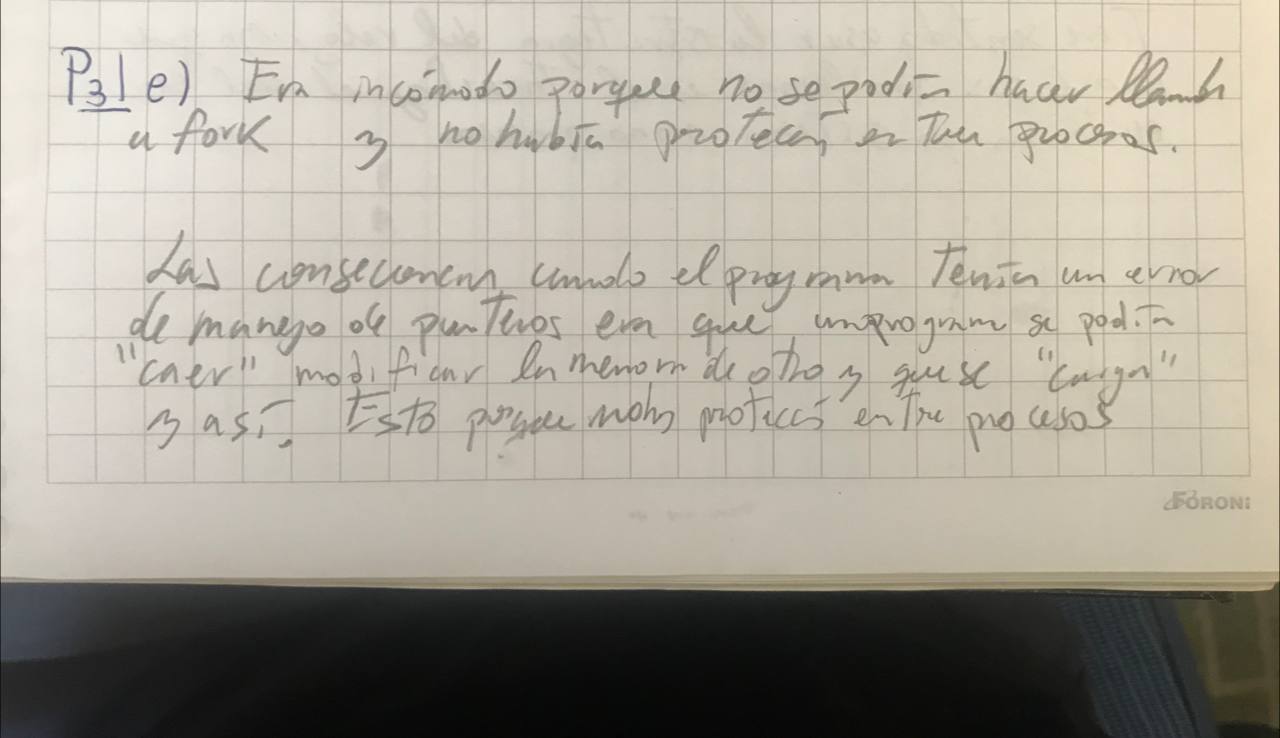 P3| e) Era incómodo porque no se podía hacer llamada
a fork y no había protección entre procesos.
Las consecuencias cuando el programa tenía un error
de manejo de punteros era que un programa se podía
"caer" modificar la memoria de otro y que se "caiga"
y así. Esto porque no hay protección entre procesos
FORONI